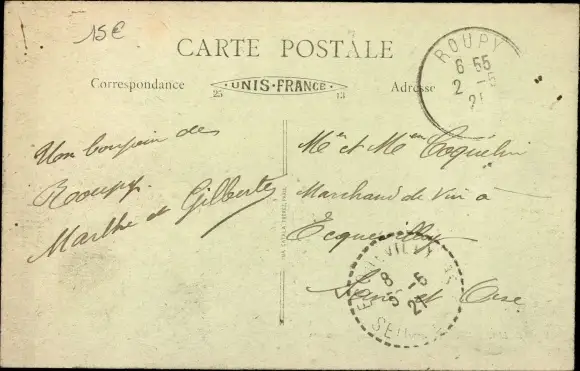 15€
CARTE POSTALE
Correspondance
UNIS-FRANCE
25
13
Adresse
ROUPY
6 55
2 -5
21
Un bonjour de
Rooupy.
Marthe et Gilberte
Mr et Mme Coquelin
Marchand de Vin à
Ecquevilly
Seine et Oise
8
3 -5
21